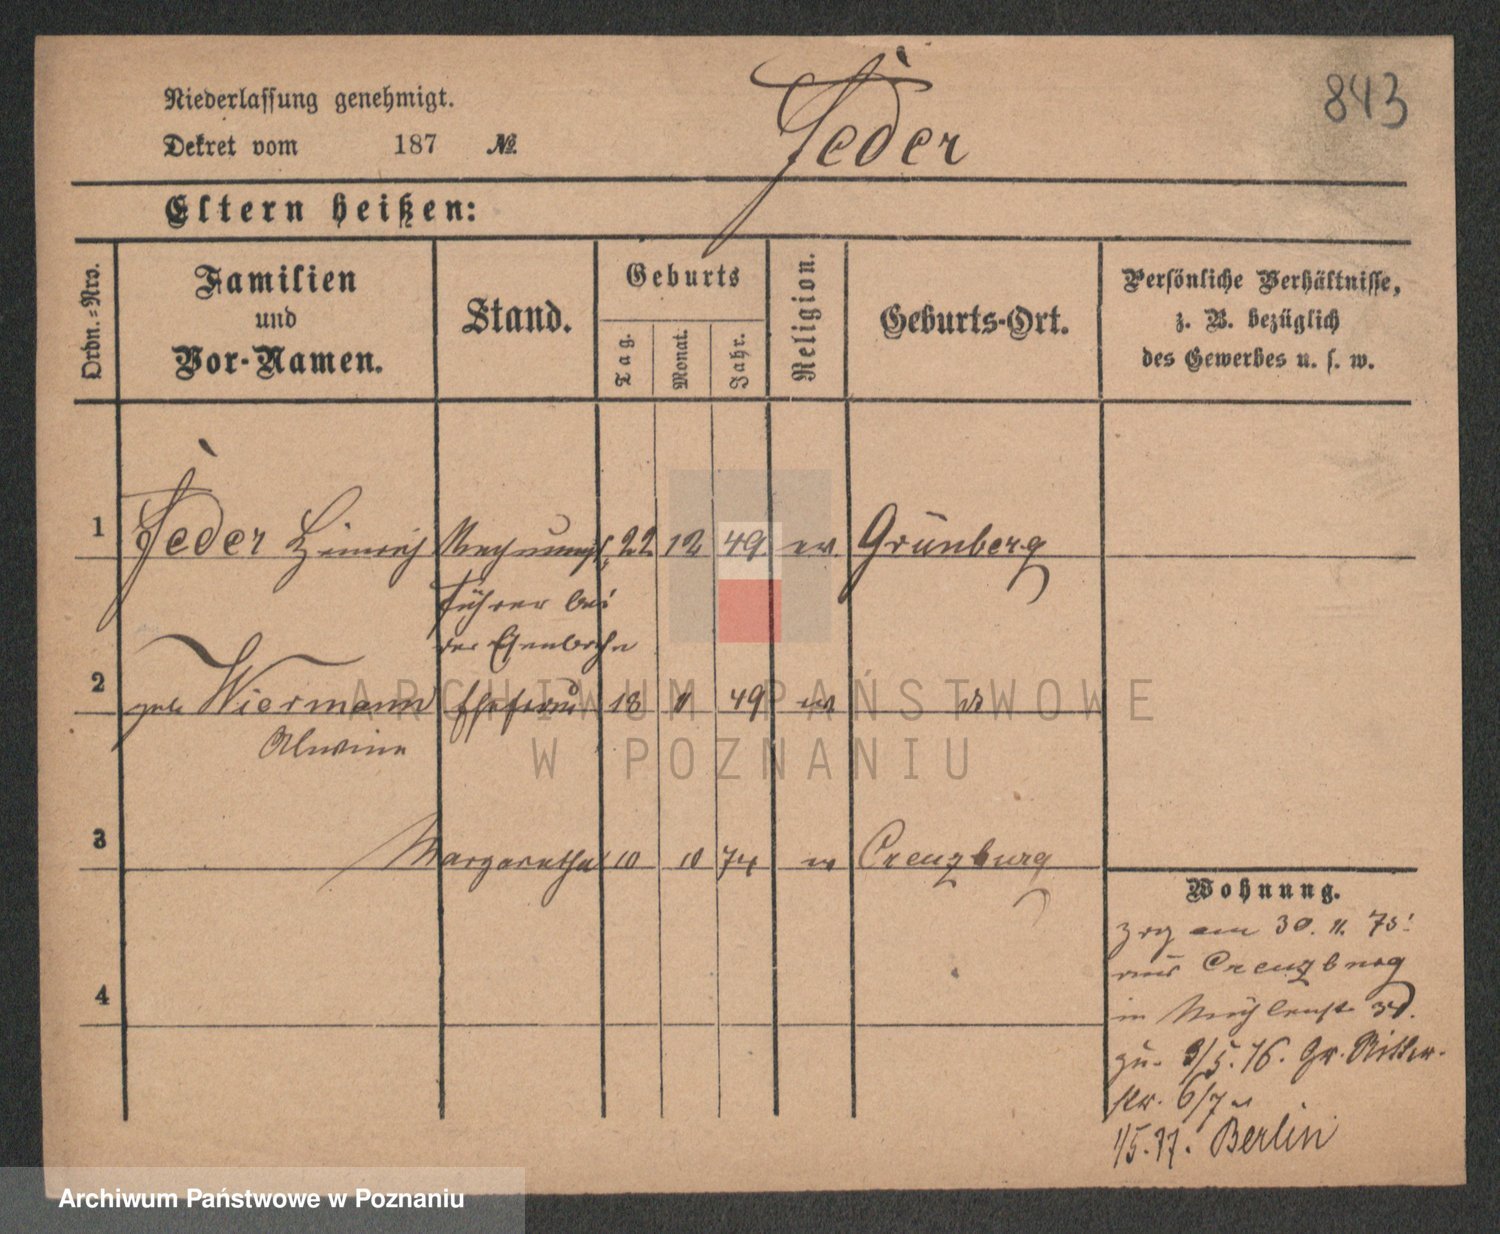 843
Niederlassung genehmigt.
Dekret vom 187 №
Feder
Eltern heißen:
Ordn.-Nro.
Familien
und
Vor-Namen.
Stand.
Geburts
Tag.
Monat.
Jahr.
Religion.
Geburts-Ort.
Persönliche Verhältnisse,
z. B. bezüglich
des Gewerbes u. s. w.
1 Feder Heinrich Rechnungs 22 12 49 ev Grünberg
führer bei
der Eisenbahn
2 geb Wiermann Ehefrau 18 49 ev
Alwine
3 Margarethe 10 10 74 ev Creuzburg
4
Wohnung.
zog am 30. 11. 75
aus Creuzburg
in Mühlenstr
zu. 3/5. 76. Gr. Ritter-
str. 6/7
1/5. 77. Berlin
ARCHIWUM PAŃSTWOWE
W POZNANIU
Archiwum Państwowe w Poznaniu